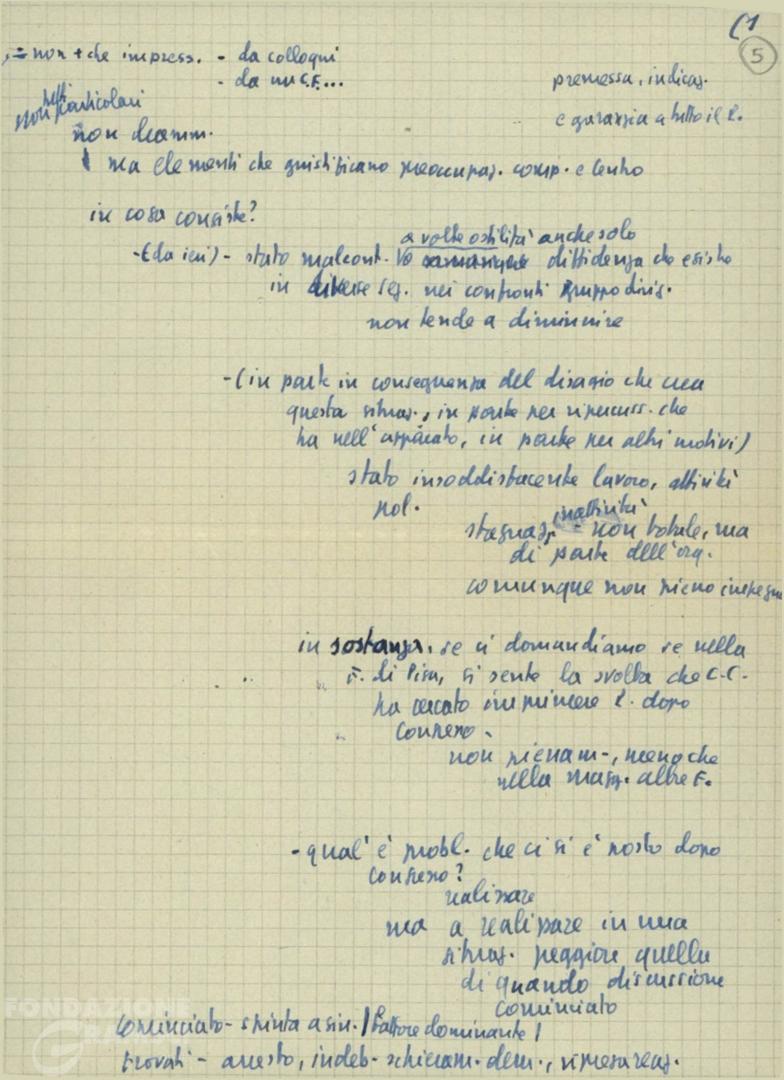 (1
5
= non + che impress. - da colloqui
- da un C.F...
premessa, indicaz.
e garanzia a tutto il P.
non
particolari
non dramm.
ma elementi che giustificano preoccupaz. comp. e Centro
in cosa consiste?
a volte ostilità anche solo
- (da ieri) - stato malcont. diffidenza che esiste
in diverse sez. nei confronti gruppo dirig.
non tende a diminuire
- (in parte in conseguenza del disagio che crea
questa situaz., in parte per ripercuss. che
ha nell'apparato, in parte per altri motivi)
stato insoddisfacente lavoro, attività
pol.
inattività
stagnaz. - non totale, ma
di parte dell'org.
comunque non pieno impegno
in sostanza, se ci domandiamo se nella
F. di Pisa, si sente la svolta che C.C.
ha cercato imprimere P. dopo
Congresso -
non pienam-, meno che
nella magg. altre F.
- qual'è probl. che ci si è posto dopo
Congresso?
realizzare
ma a realizzare in una
situaz. peggiore quella
di quando discussione
cominciato
cominciato - spinta a sin. / fattore dominante /
trovati - arresto, indeb. schieram. dem., ripresa reaz.
FONDAZIONE
GRAMSCI